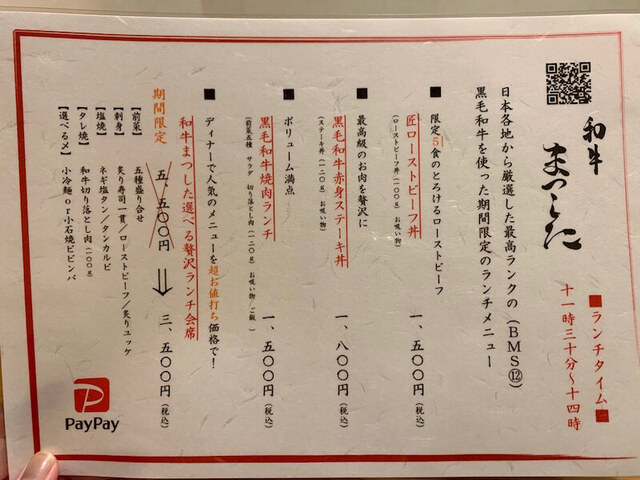 和牛
まつした
■ランチタイム■
十一時三十分〜十四時
日本各地から厳選した最高ランクの（BMS⑫）
黒毛和牛を使った期間限定のランチメニュー
■ 限定5食のとろけるローストビーフ
匠ローストビーフ丼 一、五〇〇円（税込）
（ローストビーフ丼（一〇〇g） お吸い物）
■ 最高級のお肉を贅沢に
黒毛和牛赤身ステーキ丼 一、八〇〇円（税込）
（ステーキ丼（一二〇g） お吸い物）
■ ボリューム満点
黒毛和牛焼肉ランチ 一、五〇〇円（税込）
（前菜五種 サラダ 切り落とし肉（一二〇g） お吸い物 ご飯）
■ ディナーで人気のメニューを超お値打ち価格で！
和牛まつした選べる贅沢ランチ会席
期間限定 五、五〇〇円 ⇒ 三、五〇〇円（税込）
【前菜】 五種盛り合せ
【刺身】 炙り寿司一貫／ローストビーフ／炙りユッケ
【塩焼】 ネギ塩タン／タンカルビ
【タレ焼】 和牛切り落とし肉（一〇〇g）
【選べる〆】 小冷麺or小石焼ビビンバ
PayPay